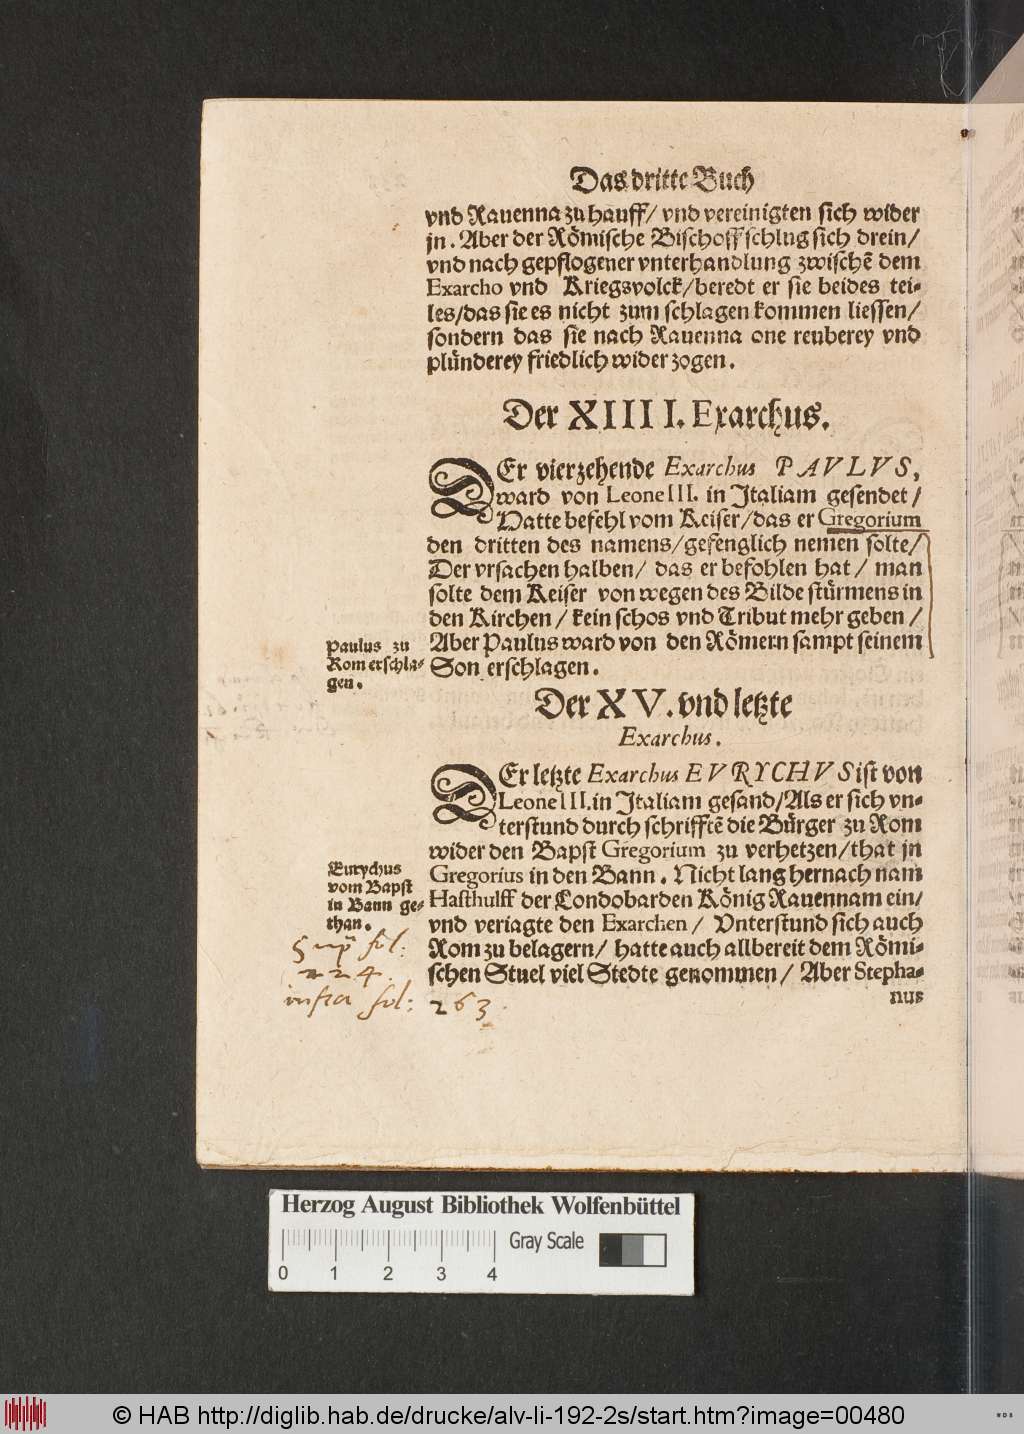 Das dritte Buch
vnd Rauenna zu hauff/ vnd vereinigten sich wider
jn. Aber der Römische Bischoff schlug sich drein/
vnd nach gepflogener vnterhandlung zwischẽ dem
Exarcho vnd Kriegsvolck/beredt er sie beides tei-
les/das sie es nicht zum schlagen kommen liessen/
sondern das sie nach Rauenna one reuberey vnd
plünderey friedlich wider zogen.
Der XIIII I. Exarchus.
DEr vierzehende Exarchus PAVLVS,
ward von Leone III. in Italiam gesendet/
Hatte befehl vom Keiser/das er Gregorium
den dritten des namens/gefenglich nemen solte/
Der vrsachen halben/ das er befohlen hat/ man
solte dem Keiser von wegen des Bilde stürmens in
den Kirchen/ kein schos vnd Tribut mehr geben/
Aber Paulus ward von den Römern sampt seinem
Son erschlagen.
Paulus zu
Rom erschla-
gen.
Der XV. vnd letzte
Exarchus.
DEr letzte Exarchus EVRYCHVS ist von
Leone III. in Italiam gesand/Als er sich vn-
terstund durch schrifftẽ die Bürger zu Rom
wider den Bapst Gregorium zu verhetzen/that jn
Gregorius in den Bann. Nicht lang hernach nam
Hasthulff der Londobarden König Rauennam ein/
vnd veriagte den Exarchen/ Vnterstund sich auch
Rom zu belagern/ hatte auch allbereit dem Römi-
schen Stuel viel Stedte genommen/ Aber Stepha-
nus
Eurychus
vom Bapst
in Bann ge-
than.
Sup fol:
224.
infra fol: 263.
Herzog August Bibliothek Wolfenbüttel
Gray Scale
0 1 2 3 4
© HAB http://diglib.hab.de/drucke/alv-li-192-2s/start.htm?image=00480